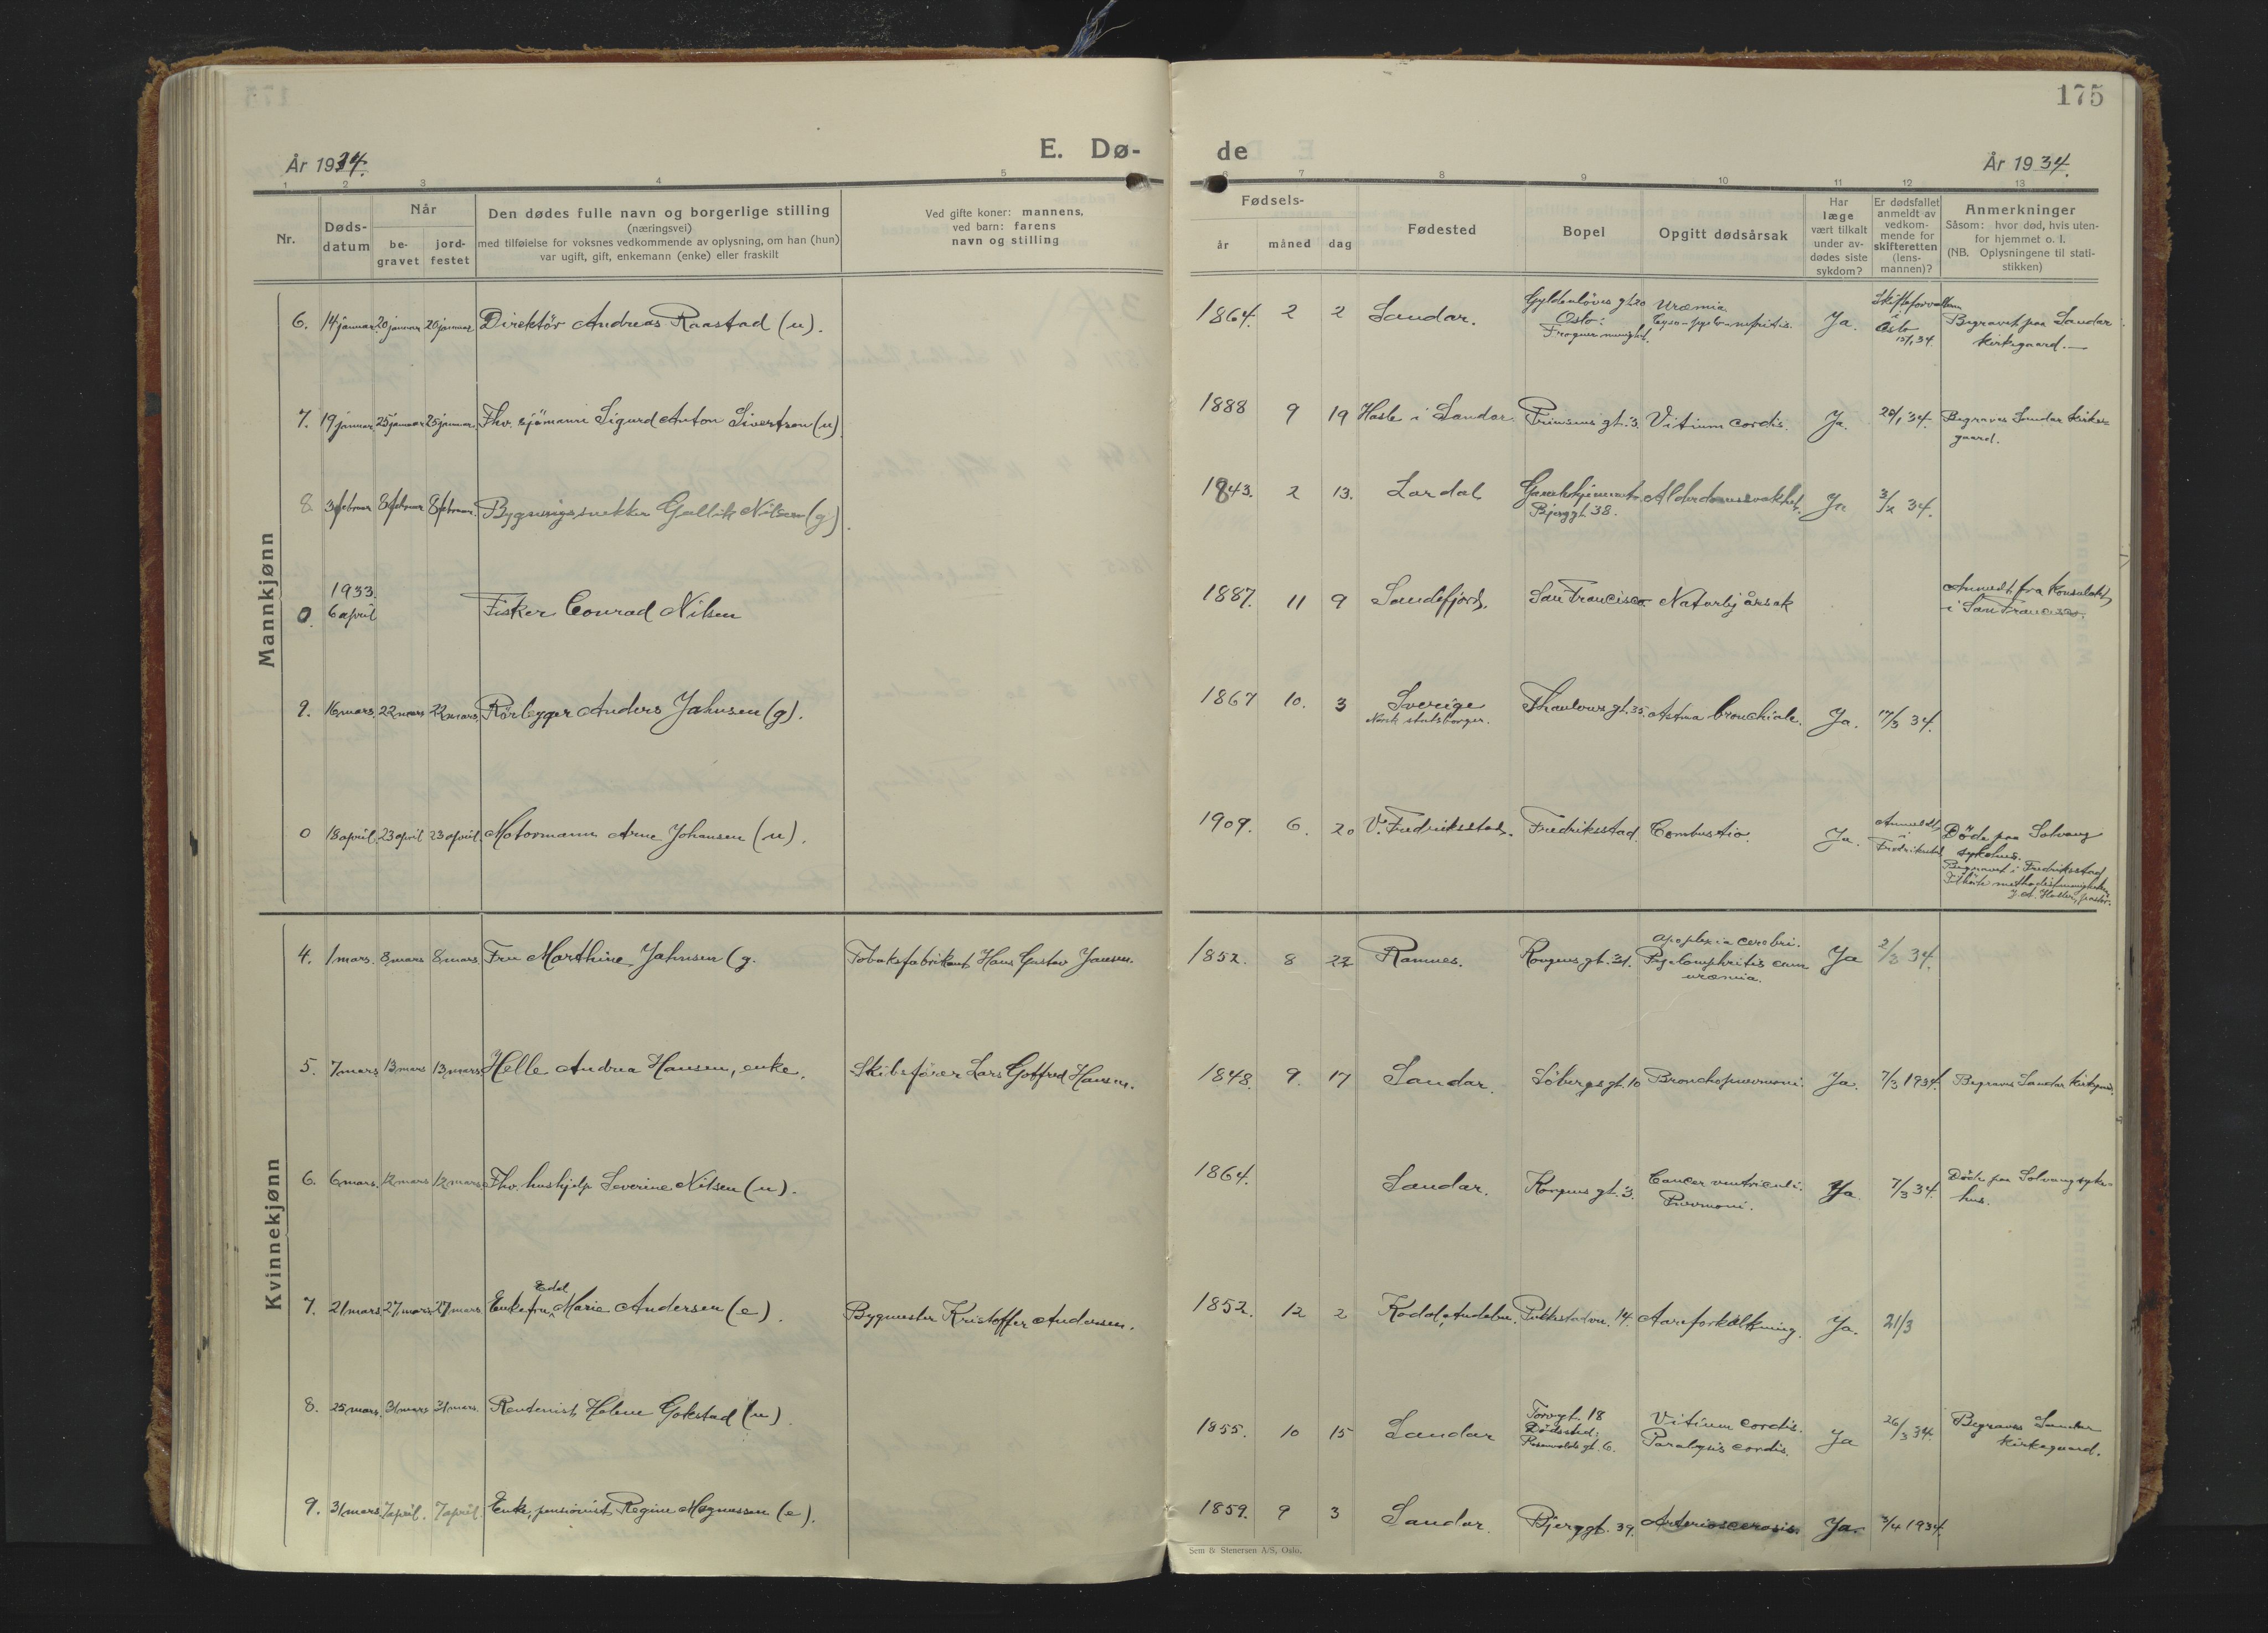 175
E. Dø-
de
År 1934.
År 1934.
1 2 3 4 5
6 7 8 9 10 11 12 13
Nr.
Døds-
datum
Når
be-
gravet
jord-
festet
Den dødes fulle navn og borgerlige stilling
(næringsvei)
med tilføielse for voksnes vedkommende av oplysning, om han (hun)
var ugift, gift, enkemann (enke) eller fraskilt
Ved gifte koner: mannens,
ved barn: farens
navn og stilling
Fødsels-
år måned dag
Fødested
Bopel
Opgitt dødsårsak
Har
læge
vært tilkalt
under av-
dødes siste
sykdom?
Er dødsfallet
anmeldt av
vedkom-
mende for
skifteretten
(lens-
mannen)?
Anmerkninger
Såsom: hvor død, hvis uten-
for hjemmet o. l.
(NB. Oplysningene til stati-
stikken)
Mannkjønn
6. 14 januar 20 januar 20 januar Direktör Andreas Raastad (u).
1864. 2 2 Sandar.
Gyldenlöves gt. 20
Oslo:
Frogner menighet.
Uræmia
Ja.
Skifteforvalteren
i
Oslo
15/1 34.
Begravet paa Sandar
kirkegaard.—
7. 19 januar 25 januar 25 januar Fhv. sjömann Sigurd Anton Sivertsen (u)
1888 9 19 Hasle i Sandar Prinsens gt. 3. Vitium cordis. Ja. 20/1 34.
Begraves Sandar kirke-
gaard.
8. 3 februar 8 februar 8 februar. Bygningssnekker Gullik Nilsen (g).
1843. 2 13. Lardal
Gamlehjemmet
Bjerggt. 38.
Alderdomssvakhet. Ja 3/2 34.
1933.
0. 6 april Fisker Conrad Nilsen
1887. 11 9 Sandefjord. San Francisco Naturlig årsak
Anmeldt fra Konsulatet
i San Francisco.
9. 16 mars. 22 mars 22 mars. Rörlegger Anders Jahnsen (g).
1867 10. 3 Sverige
Norsk statsborger.
Thaulows gt. 35. Astma bronchiale. Ja. 17/3 34.
0 18 april. 23 april 23 april. Motormann Arne Johansen (u).
1909. 6. 20 V. Fredriksstad. Fredriksstad. Combustio. Ja.
Anmeldt
i
Fredriksstad
Döde paa Solvang
sykehus.
Begravet i Fredriksstad
Tilhörte methodistmenigheten
Kvinnekjønn
4. 1 mars. 8 mars 8 mars. Fru Marthine Jahnsen (g.
Tobaksfabrikant Hans Gustav Jansen.
1852. 8 22 Ramnes. Kongens gt. 31.
Apoplexia cerebri.
Pyelonephritis cum
uræmia.
Ja 2/3 34.
5. 7 mars 13 mars 13 mars Helle Andrea Hansen, enke.
Skibsförer Lars Gotfred Hansen.
1848. 9. 17 Sandar. Söbergs gt. 10 Bronchopneumoni. Ja. 7/3 1934. Begraves Sandar kirkegaard.
6. 6 mars. 12 mars 12 mars. Fhv. hushjelp Severine Nilsen (u).
1864. Sandar. Kongens gt. 3.
Cancer ventriculi.
Pnevmoni.
Ja. 7/3 34.
Döde paa Solvang syke-
hus.
Edel
7. 21 mars. 27 mars 27 mars. Enkefru Marie Andersen (e).
Bygmester Kristoffer Andersen.
1852. 12 2 Kodal, Andebu. Pukkestadvn. 14. Aareforkalkning. Ja. 21/3
8. 25 mars. 31 mars 31 mars. Rentenist Helene Gokstad (u).
1855. 10 15 Sandar
Torvgt. 18
Dödssted:
Rosenvolds gt. 6.
Vitium cordis.
Paralysis cordis.
Ja 26/3 34.
Begraves Sandar
kirkegaard.
9. 31 mars. 7 april. 7 april. Enke, pensionist Regine Magnussen (e).
1859. 9 3 Sandar. Bjerggt. 39. Arteriosclerosis. Ja. 3/4 1934.
Sem & Stenersen A/S, Oslo.